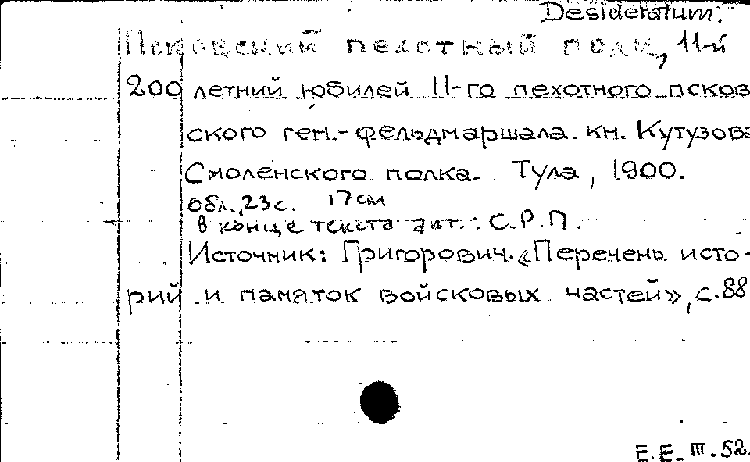 Desideratum.
Псковский пехотный полк, 11-й
200 летний юбилей 11-го пехотного псков
ского ген.-фельдмаршала кн. Кутузова
Смоленского полка. Тула, 1900.
обл., 23 с. 17 см
в конце текста авт.: С.Р.П.
Источник: Григорович. «Перечень исто-
рий и памяток войсковых частей», с. 88
Е.Е. III. 52.